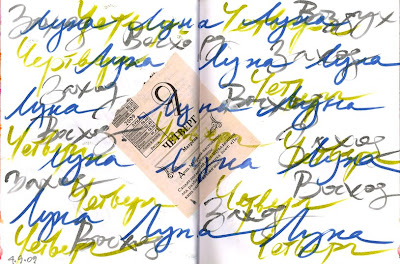 Луна Четверг Луна Луна Четверг Восход
Восход Заход
Четверг Луна Луна Луна
Заход Четверг
Луна 9 Луна Восход Луна
Четверг Восход ЧЕТВЕРГ Четверг Четверг Заход
Луна Луна Луна
Заход Четверг Четверг Восход
Луна Заход
Четверг Восход Луна Четверг Луна
4.9.09